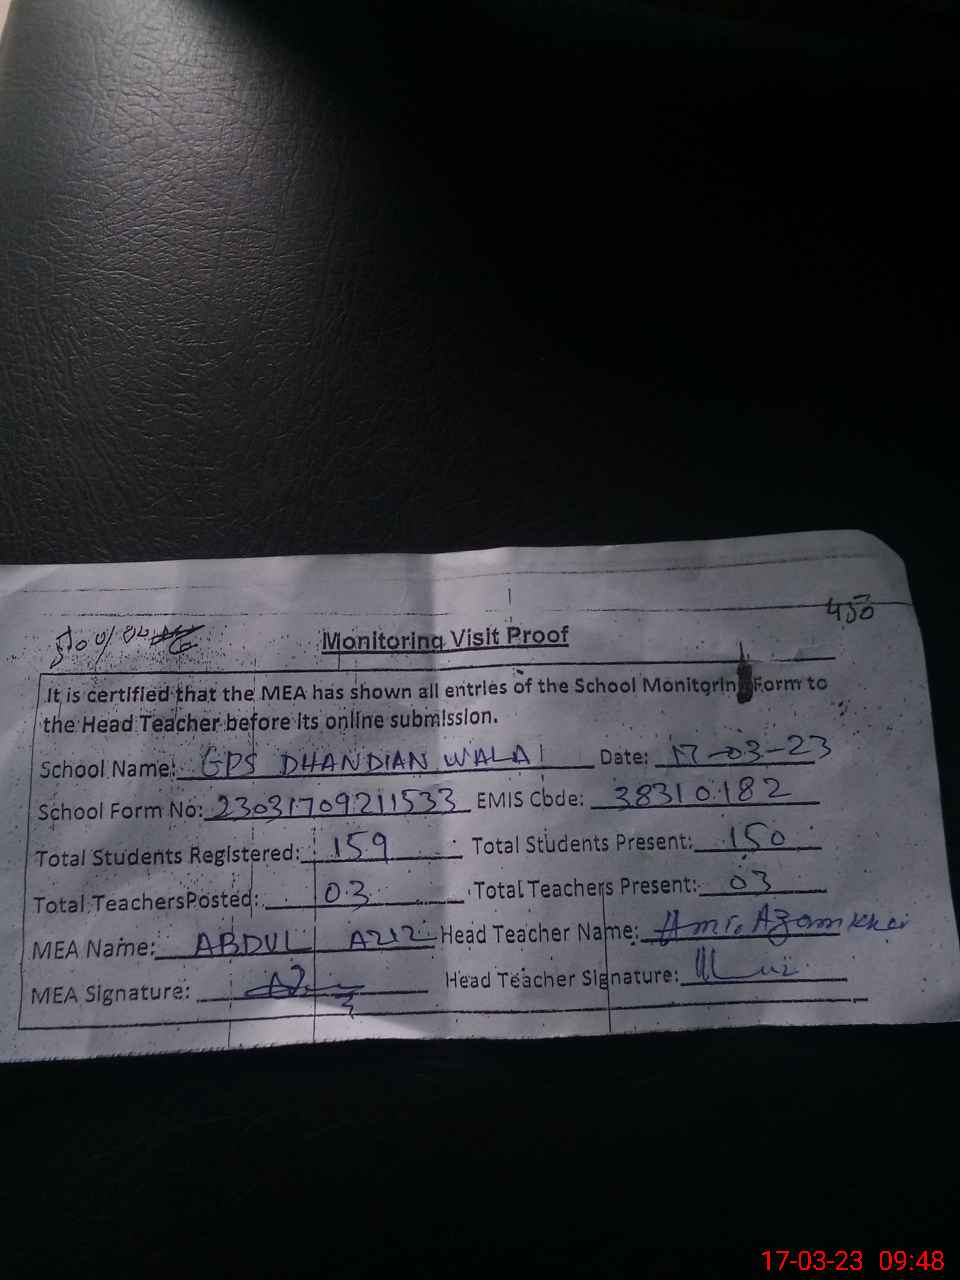 450
Monitoring Visit Proof
It is certified that the MEA has shown all entries of the School Monitoring Form to
the Head Teacher before its online submission.
School Name: GPS DHANDIAN WALA Date: 17-03-23
School Form No: 23031709211533 EMIS Code: 38310182
Total Students Registered: 159 Total Students Present: 150
Total TeachersPosted: 03 Total Teachers Present: 03
MEA Name: ABDUL AZIZ Head Teacher Name: Azam
MEA Signature: Head Teacher Signature:
17-03-23 09:48